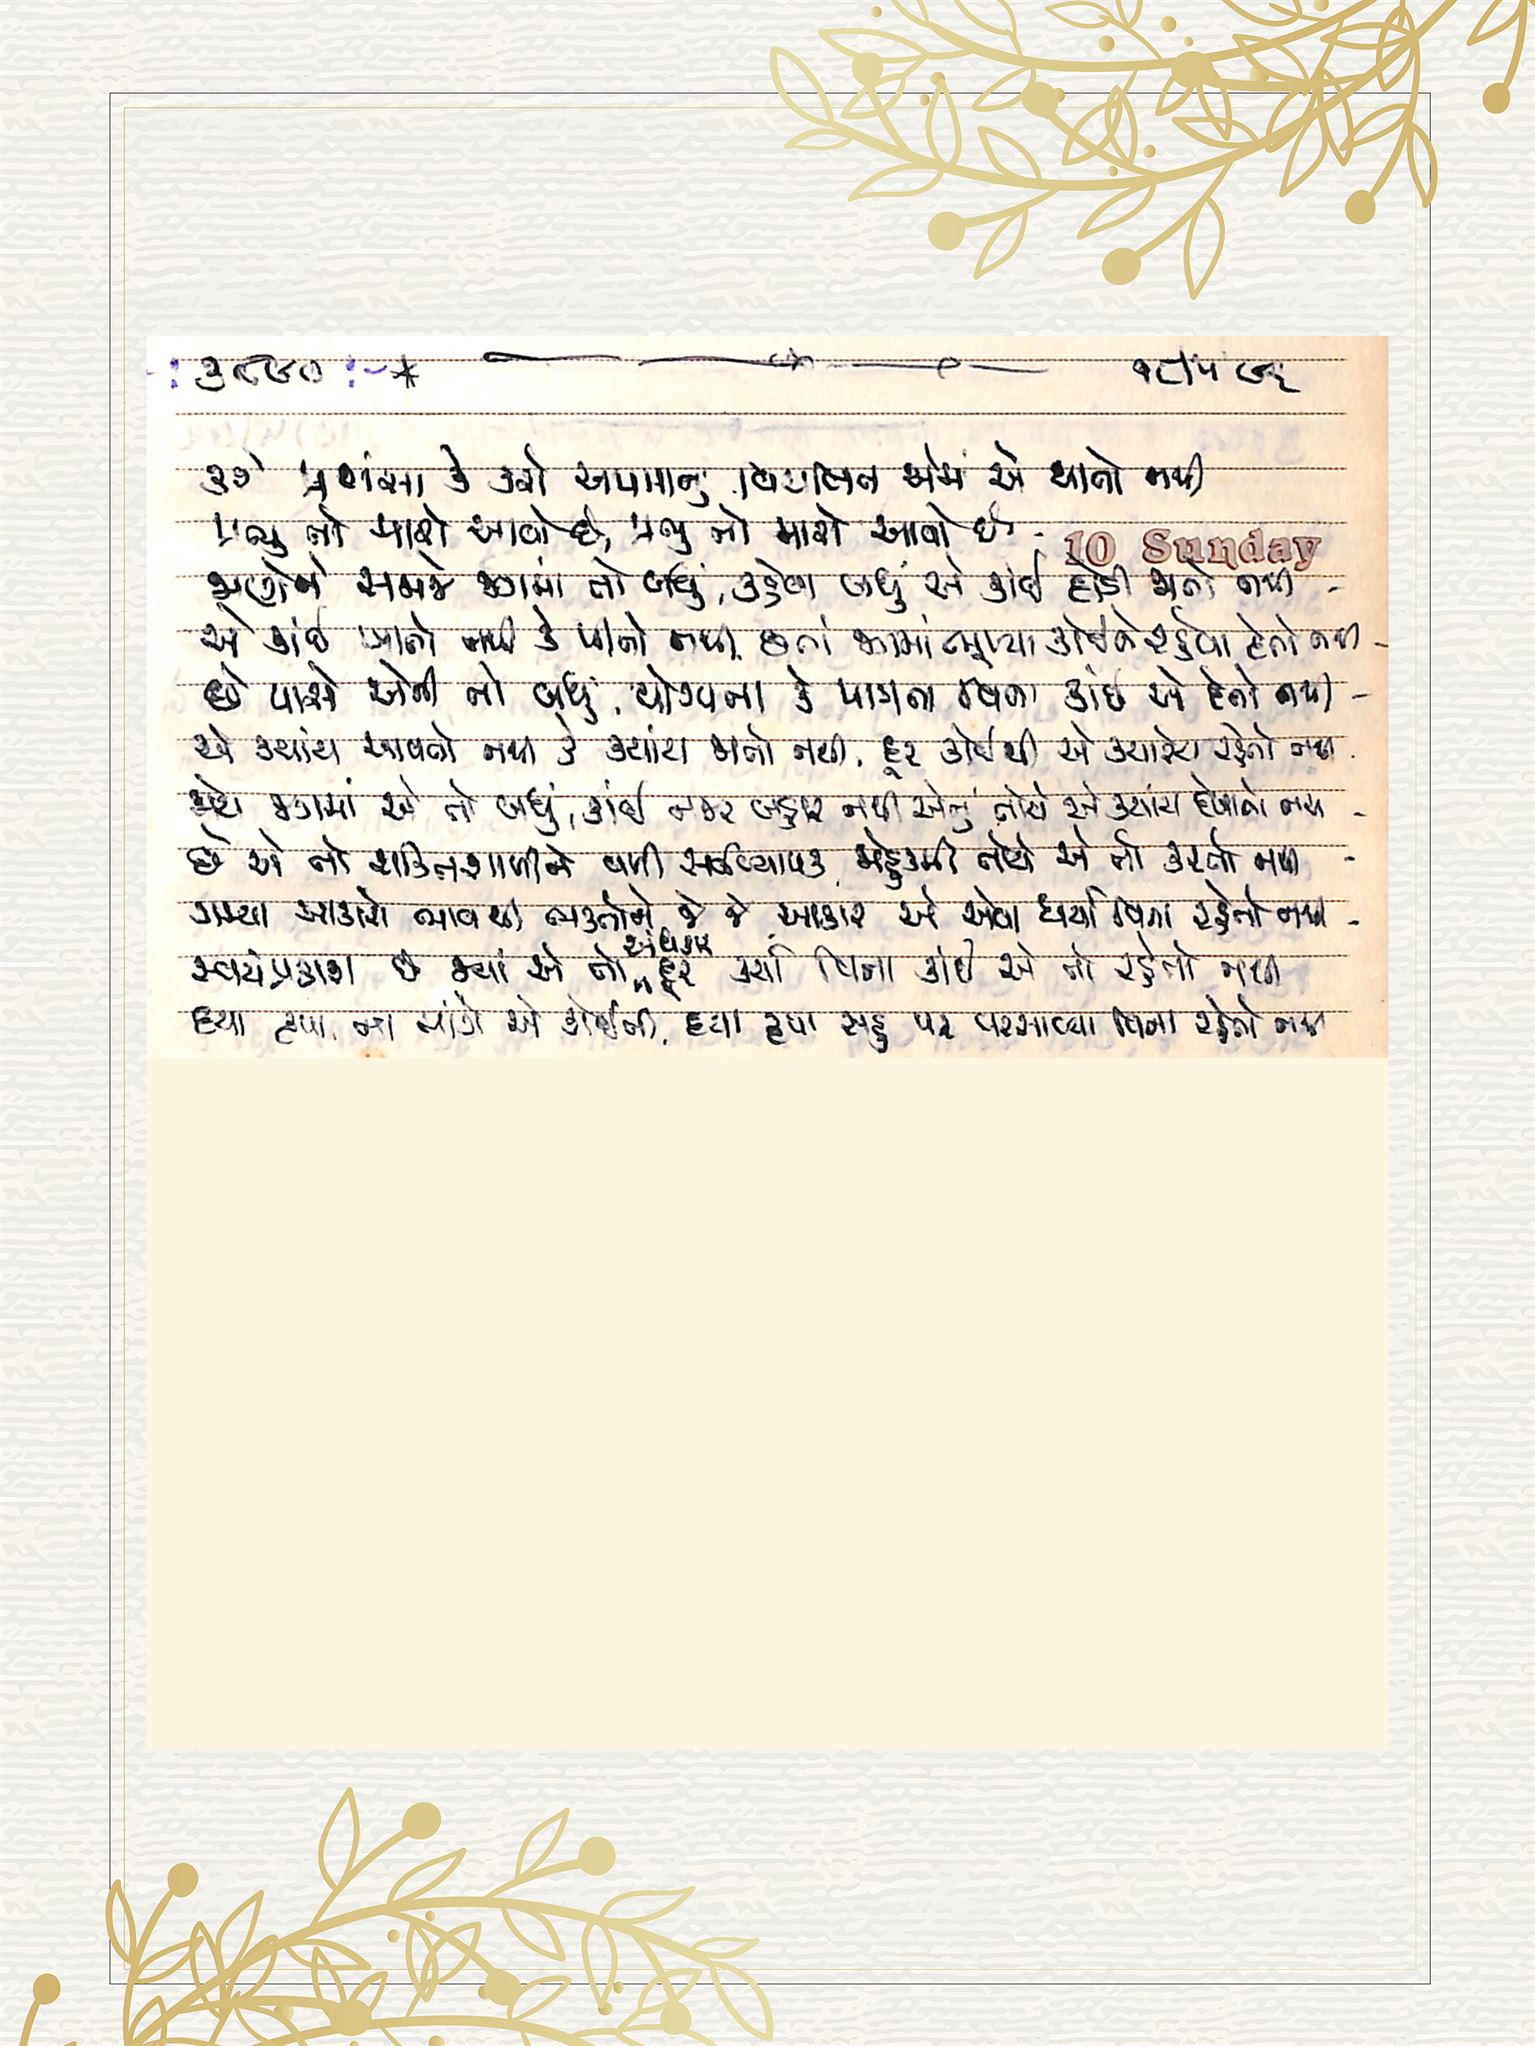 :૩૮૯૦:-* ૧૮/૫
કરે પ્રશંસા કે કરો અપમાનું વિચલિત એમાં એ થાતો નથી
પ્રભુ તો મારો આવો છે, પ્રભુ તો મારો આવો છે -
10 Sunday
જાણે ને સમજે જગમાં તો બધું, કહેવા બધું એ કાંઈ દોડી જાતો નથી -
એ કાંઈ ખાતો નથી કે પીતો નથી, છતાં જગમાં ભૂખ્યા કોઈને રહેવા દેતો નથી -
છે પાસે એની તો બધું, યોગ્યતા કે પાત્રતા વિના કાંઈ એ દેતો નથી -
એ ક્યાંય આવતો નથી કે ક્યાંય જાતો નથી, દૂર કોઈથી એ ક્યારેય રહેતો નથી
જુએ જગમાં એ તો બધું, કાંઈ નજર બહાર નથી એનું, તોયે એ ક્યાંય દેખાતો નથી -
છે એ તો શક્તિશાળી ને વળી સર્વવ્યાપક, મહેકમી તોયે એ તો કરતો નથી -
ગમ્યા આકારો ભાવથી ભક્તોને જે જે, આકાર એ એવા ધર્યા વિના રહેતો નથી -
સ્વયંપ્રકાશ છે જ્યાં એ તો, અંધકાર દૂર કર્યા વિના કાંઈ એ તો રહેતો નથી
દયા કૃપા ના માંગે એ કોઈની, દયા કૃપા સહુ પર વરસાવ્યા વિના રહેતો નથી